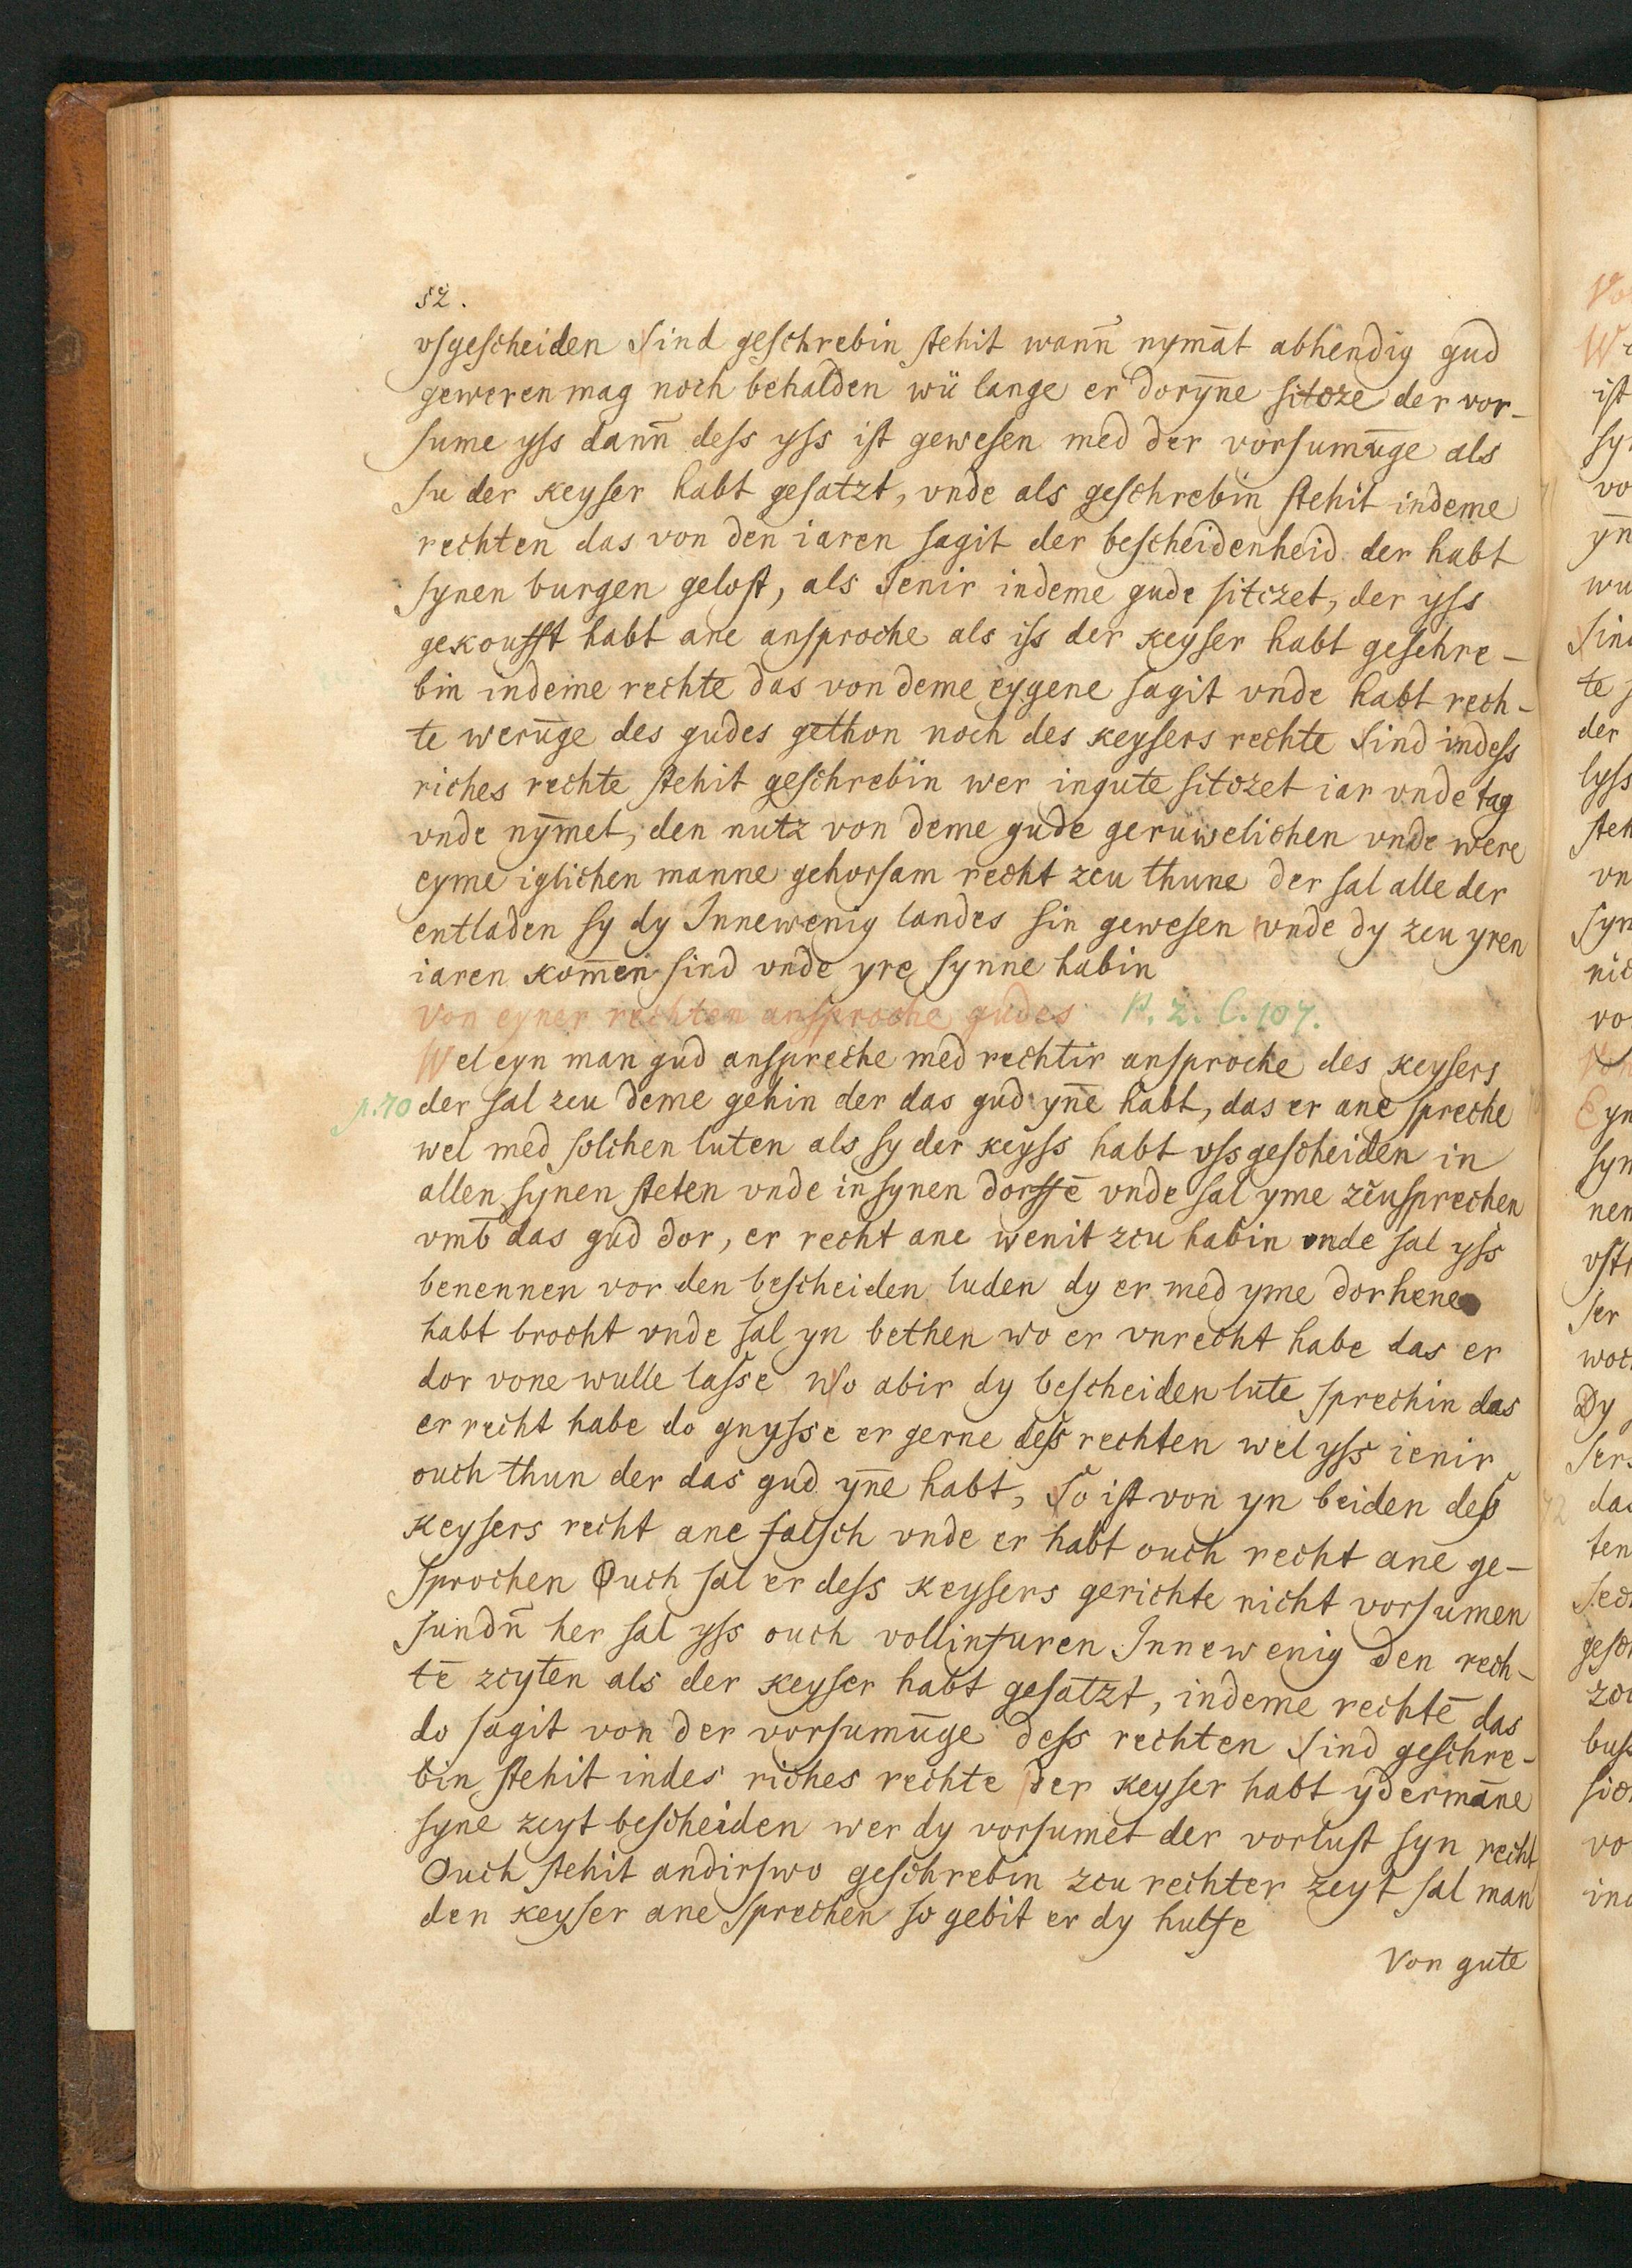 52.
vsgescheiden Sind geschrebin stehit wann̄ nymāt abhendig gud
geweren mag noch behalden wü lange er dorȳne sitcze der vor-
sume yss dann̄ dess yss ist gewesen med der vorsumūge als
su der keyser habt gesatzt, vnde als geschrebin stehit indeme
rechten das von den iaren sagit der bescheidenheid der habt
synen burgen gelost, als Jenir indeme gude sitczet, der yss
gekoufft habt ane ansproche als iss der keyser habt geschre-
bin indeme rechte das von deme eygene sagit vnde habt rech-
te werūge des gudes gethon noch des keysers rechte Sind indess
riches rechte stehit geschrebin wer ingute sitczet iar vnde tag
vnde nȳmet, den nutz von deme gude geruwelichen vnde were
eyme iglichen manne gehorsam recht zcu thune der sal alle der
entladen sy dy Innewenig landes sin gewesen vnde dy zcu yren
iaren kom̄en sind vnde yre synne habin
Von eyner rechten ansproche gudes P. 2. C. 107.
Wel eyn man gud anspreche med rechtir ansproche des keysers
p.70 der sal zcu deme gehin der das gud yn̄e habt, das er ane spreche
wel med solchen luten als sy der keyss habt vss gescheiden in
allen synen steten vnde in synen dorffē vnde sal yme zcusprechen
vmb das gud dor, er recht ane wenit zcu habin vnde sal yss
benennen vor den bescheiden luden dy er med yme dorhene
habt brocht vnde sal yn bethen wo er vnrecht habe das er
dor vone wulle lasse Wo abir dy bescheiden lute sprechin das
er recht habe do gnysse er gerne dess rechten wel yss ienir
ouch thun der das gud yn̄e habt, So ist von yn beiden dess
keysers recht ane falsch vnde er habt ouch recht ane ge-
sprochen Ouch sal er dess keysers gerichte nicht vorsumen
sundn̄ her sal yss ouch vollinfuren Innewenig den rech-
tē zcyten als der keyser habt gesatzt, indeme rechtē das
do sagit von der vorsumūge dess rechten Sind geschre-
bin stehit indes riches rechte der keyser habt ydermāne
syne zeyt bescheiden wer dy vorsumet der vorlust syn recht
Ouch stehit andirswo geschrebin zcu rechter zeyt sal man
den keyser ane sprechen so gebit er dy hulfe
Von gute